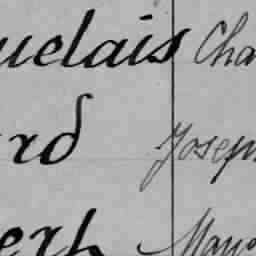 uelais Cha
rd Joseph
erh May